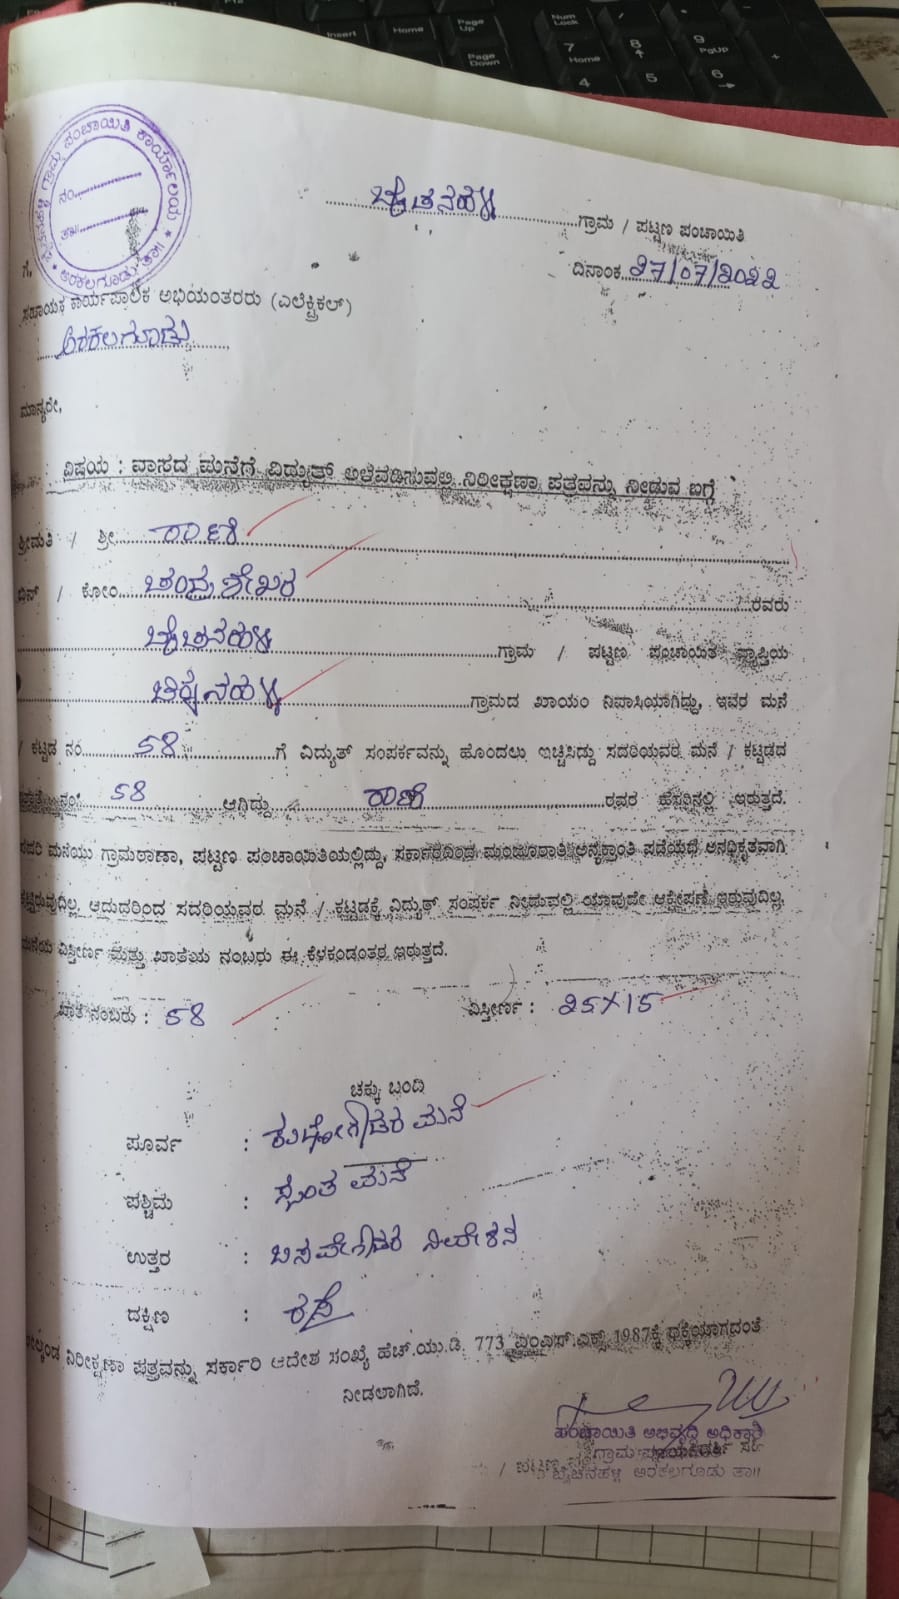 Insert Home Page Up Num Lock / * -
Page Down 7 Home 8 9 PgUp +
4 5 6
ಗ್ರಾಮ ಪಂಚಾಯಿತಿ ಕಾರ್ಯಾಲಯ
ನಂ
ತಾ||
ಅರಕಲಗೂಡು ತಾ||
ಬೈಚನಹಳ್ಳಿ ಗ್ರಾಮ / ಪಟ್ಟಣ ಪಂಚಾಯಿತಿ
ದಿನಾಂಕ 27/07/2022
ಗೆ,
ಸಹಾಯಕ ಕಾರ್ಯಪಾಲಕ ಅಭಿಯಂತರರು (ಎಲೆಕ್ಟ್ರಿಕಲ್)
ಅರಕಲಗೂಡು
ಮಾನ್ಯರೇ,
ವಿಷಯ : ವಾಸದ ಮನೆಗೆ ವಿದ್ಯುತ್ ಅಳವಡಿಸುವಲ್ಲಿ ನಿರೀಕ್ಷಣಾ ಪತ್ರವನ್ನು ನೀಡುವ ಬಗ್ಗೆ
ಶ್ರೀಮತಿ / ಶ್ರೀ ರಾಣಿ
ಬಿನ್ / ಕೋಂ ಚಂದ್ರಶೇಖರ ರವರು
ಬೈಚನಹಳ್ಳಿ ಗ್ರಾಮ / ಪಟ್ಟಣ ಪಂಚಾಯಿತಿ ವ್ಯಾಪ್ತಿಯ
ಗ್ರಾಮದ ಖಾಯಂ ನಿವಾಸಿಯಾಗಿದ್ದು, ಇವರ ಮನೆ
/ ಕಟ್ಟಡ ನಂ 58 ಗೆ ವಿದ್ಯುತ್ ಸಂಪರ್ಕವನ್ನು ಹೊಂದಲು ಇಚ್ಚಿಸಿದ್ದು ಸದರಿಯವರ ಮನೆ / ಕಟ್ಟಡದ
ಖಾತೆ ನಂ: 58 ಆಗಿದ್ದು ರಾಣಿ ರವರ ಹೆಸರಿನಲ್ಲಿ ಇರುತ್ತದೆ.
ಸದರಿ ಮನೆಯು ಗ್ರಾಮಠಾಣಾ, ಪಟ್ಟಣ ಪಂಚಾಯಿತಿಯಲ್ಲಿದ್ದು, ಸರ್ಕಾರದಿಂದ ಮಂಜೂರಾತಿ ಅನ್ಯಕ್ರಾಂತಿ ಪಡೆಯದೆ ಅನಧಿಕೃತವಾಗಿ
ಕಟ್ಟಿರುವುದಿಲ್ಲ. ಆದುದರಿಂದ ಸದರಿಯವರ ಮನೆ / ಕಟ್ಟಡಕ್ಕೆ ವಿದ್ಯುತ್ ಸಂಪರ್ಕ ನೀಡುವಲ್ಲಿ ಯಾವುದೇ ಆಕ್ಷೇಪಣೆ ಇರುವುದಿಲ್ಲ.
ಮನೆಯ ವಿಸ್ತೀರ್ಣ ಮತ್ತು ಖಾತೆಯ ನಂಬರು ಈ ಕೆಳಕಂಡಂತರ ಇರುತ್ತದೆ.
ಖಾತೆ ನಂಬರು : 58 ವಿಸ್ತೀರ್ಣ : 25X15
ಚಕ್ಕು ಬಂದಿ
ಪೂರ್ವ : ಮನೆ
ಪಶ್ಚಿಮ : ಸ್ವಂತ ಮನೆ
ಉತ್ತರ : ನಿವೇಶನ
ದಕ್ಷಿಣ : ರಸ್ತೆ
ಮೇಲ್ಕಂಡ ನಿರೀಕ್ಷಣಾ ಪತ್ರವನ್ನು ಸರ್ಕಾರಿ ಆದೇಶ ಸಂಖ್ಯೆ ಹೆಚ್.ಯು.ಡಿ. 773 ಎಂ.ಎಸ್.ಎಕ್ಸ್ 1987ಕ್ಕೆ ಧಕ್ಕೆಯಾಗದಂತೆ
ನೀಡಲಾಗಿದೆ.
ಪಂಚಾಯಿತಿ ಅಭಿವೃದ್ಧಿ ಅಧಿಕಾರಿ
ಗ್ರಾಮ
/ ಪಟ್ಟಣ
ಬೈಚನಹಳ್ಳಿ ಅರಕಲಗೂಡು ತಾ||